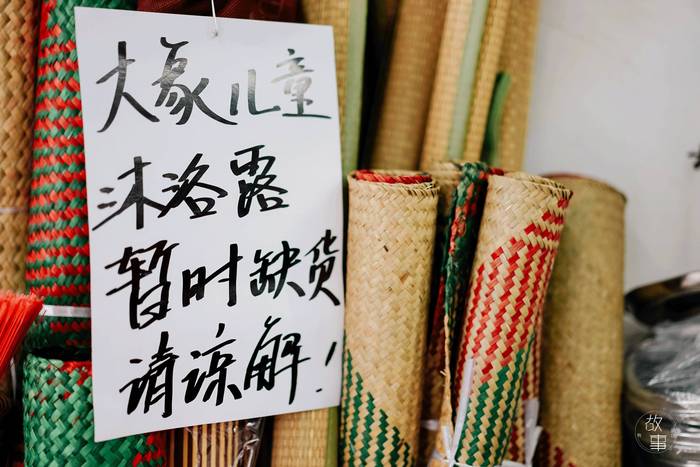 大象儿童
沐浴露
暂时缺货
请谅解！
故事